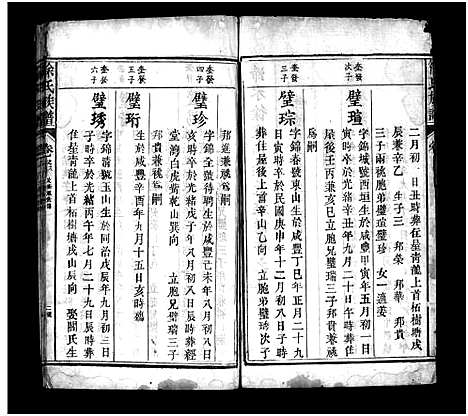 二月初一日丑時葬在星青龍上首柘樹塘戌
辰兼辛乙　生子三　邦榮　邦華　邦貴
三子兩祧胞弟璧瑄璧珍　女一適姜
奎發次子
璧瑄
字錦城號西垣生於咸豐甲寅年五月初一日
寅時卒於光緒辛丑年九月二十日午時葬住
屋後壬丙兼亥巳立胞兄璧瑞三子邦貴兼祧
爲嗣
奎發三子
璧琮
字錦春號東山生於咸豐丁巳年正月二十九
子時卒於民國庚申年十二月初八日子時
葬住屋後上首辛山乙向　立胞弟璧瑞次子
邦蓮兼祧爲嗣
奎發四子
璧珍
字錦全號得時生於咸豐己未年八月初十日
寅時卒於光緒戊子年八月初八日辰時葬祠
堂灣白虎嘴乾山巽向　立胞兄璧瑞三子
邦貴兼祧爲嗣
奎發五子
璧珩
生於咸豐辛酉年九月十五日亥時殤
奎發六子
璧琇
字錦清號玉山生於同治戊辰年九月初三日
子時卒於光緒丙午年七月二十九日辰時葬
在星青龍上首柘樹塘戌山辰向　娶關氏生
徐氏族譜